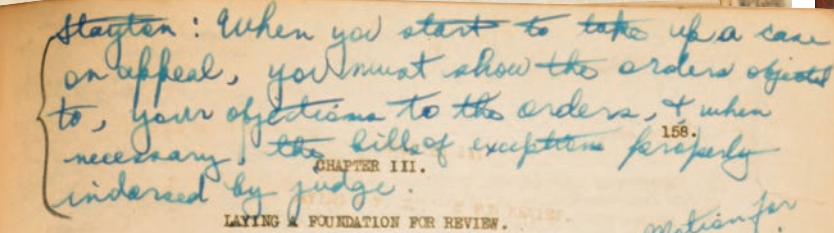 Stayton: When you start to take up a case
on appeal, you must show the orders objected
to, your objections to the orders, & when
158.
necessary, the bills of exceptions properly
CHAPTER III.
indorsed by judge.
LAYING A FOUNDATION FOR REVIEW.
Motion for